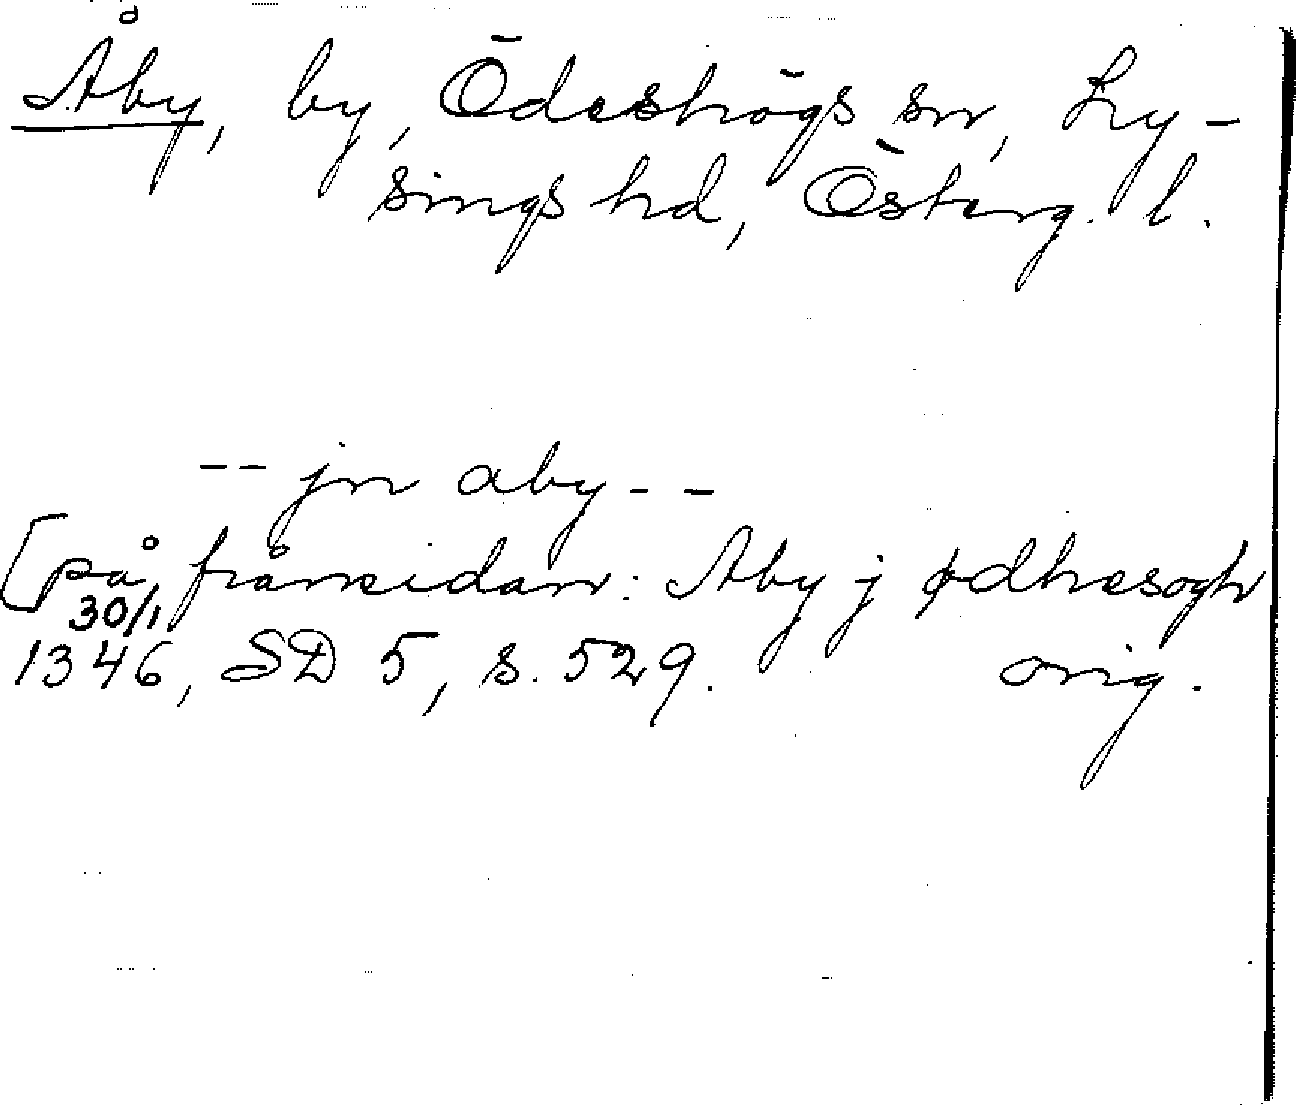 Åby, by, Ödeshögs sn, Ly-
sings hd, Österg. l.
-- jn aby --
[på frånsidan: Aby j ødhæsogh
30/1
1346, SD 5, s. 529. orig.